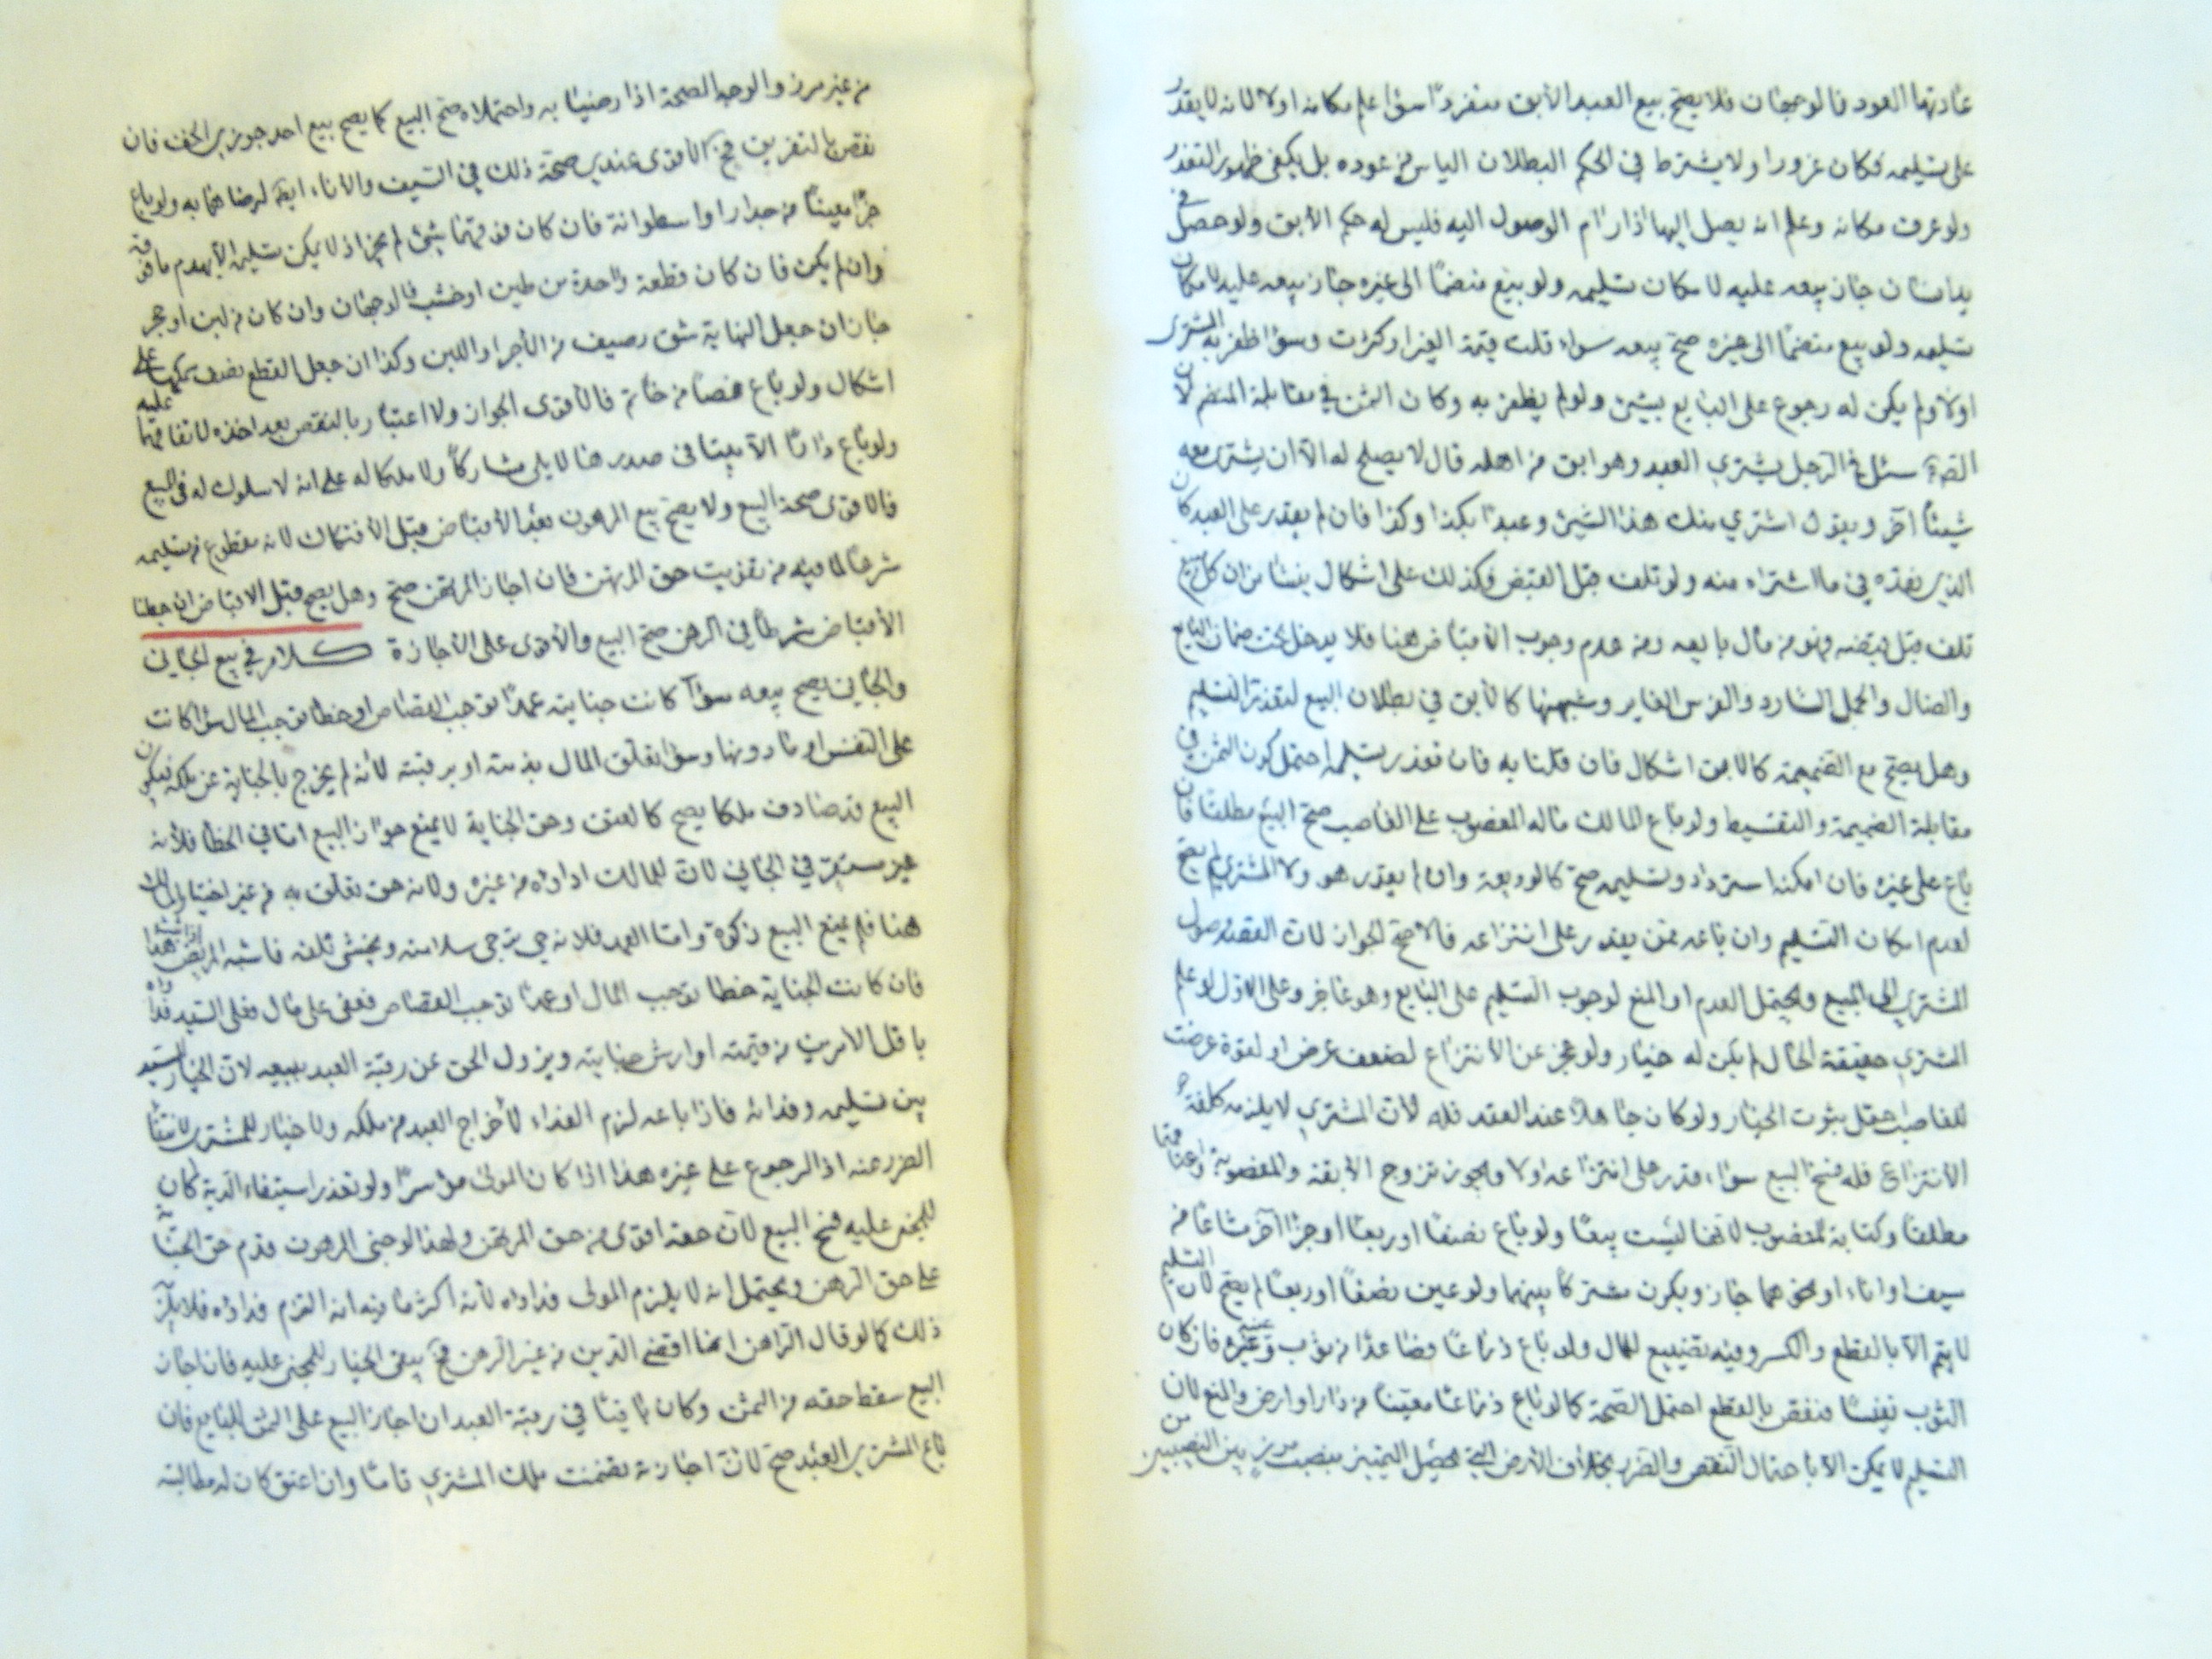 عادتهما العود فالوجهان فلا يصح بيع العبد الآبق منفردا سواء علم مكانه اولا لانه لا يقدر
على تسليمه فكان غرورا ولا يشترط في الحكم البطلان الياس من عوده بل يكفي ظهور التعذر
ولو عرف مكانه وعلم انه يصل اليها اذا رام الوصول اليه فليس له حكم الآبق ولو حصل في
يد انسان جاز بيعه عليه لامكان تسليمه ولو بيع منضما الى غيره جاز بيعه عليه لامكان
تسليمه ولو بيع منضما الى غيره صح بيعه سواء قلت قيمة الغير او كثرت وسواء ظفر به المشتري
اولا ولم يكن له رجوع على البايع بشئ ولو لم يظفر به وكان الثمن في مقابلة المنضم لان
سئل في الرجل يشتري العبد وهو ابق من اهله قال لا يصلح له الا ان يشتري معه
شيئا آخر ويقول اشتري منك هذا الشئ وعبدا بكذا وكذا فان لم يقدر على العبد كان
الذي نقده في ما اشتراه منه ولو تلف قبل القبض فكذلك على اشكال ينشا من ان كل مبيع
تلف قبل قبضه فهو من مال بايعه ومن عدم وجوب الاقباض هنا فلا يدخل تحت ضمان البايع
والضال والجمل الشارد والفرس الغاير وشبههما كالآبق في بطلان البيع لتعذر التسليم
وهل يصح مع الضميمة كالابق اشكال فان قلنا به فان تعذر تسليمه احتمل كون الثمن في
مقابلة الضميمة والتقسيط ولو باع المالك ماله المغصوب على الغاصب صح البيع مطلقا فان
باع على غيره فان امكنه استرداد وتسليمه صح كالوديعة وان لم يقدر هو ولا المشتري لم يصح
لعدم امكان التسليم وان باعه ممن يقدر على انتزاعه فالاصح الجواز لان القصد وصول
المشتري الى المبيع ويحتمل العدم او المنع لوجوب التسليم على البايع وهو عاجز وعلى الاول لو علم
المشتري حقيقة الحال لم يكن له خيار ولو عجز عن الانتزاع لضعف عرض او لقوة عرضت
للغاصب احتمل ثبوت الخيار ولو كان جاهلا عند العقد فله لان المشتري لا يلزمه كلفة
الانتزاع فله فسخ البيع سواء قدر على انتزاعه اولا ويجوز تزويج الآبقة والمغصوبة واعتاقهما
مطلقا وكتابة المغصوب لانها ليست بيعا ولو باع نصفا او ربعا او جزءا آخر مشاعا من
سيف او اناء او نحوهما جاز ويكون مشتركا بينهما ولو عين نصفا او ربعا لم يصح لان التسليم
لا يتم الا بالقطع والكسر وفيه تضييع للمال ولو باع ذراعا فصاعدا من ثوب وعينه فان كان
الثوب نفيسا منقص بالقطع احتمل الصحة كما لو باع ذراعا معينا من دار او ارض والمنع لان
التسليم لا يمكن الا باحتمال النقص والضرر بخلاف الارض التي يحصل التمييز بنصب مرز بين النصيبين
من غير مرز والوجه الصحة اذا رضينا به واحتملاه صح البيع كما يصح بيع احد جوزي الخف فان
نقص بالتفريق الاقوى عندي صحة ذلك في السيف والاناء لرضاهما به ولو باع
جزءا معينا من جدار او اسطوانة فان كان فوقهما شئ لم يجز اذ لا يمكن تسليمه الا بهدم ما فوقه
وان لم يكن فان كان قطعة واحدة من طين او خشب فالوجهان وان كان من لبن او حجر
جاز ان جعل النهاية شق رصيف من الآجر او اللبن وكذا ان جعل القطع نصف سمكهما على
اشكال ولو باع فصا من خاتم فالاقوى الجواز ولا اعتبار بالنقص بعد اخذه لاتفاقهما عليه
ولو باع دارا الا بيتا في صدرها لا يلي مشاركا ولا ملكا له على انه لا سلوك له في البيع
فالاقوى صحة البيع ولا يصح بيع المرهون بعد الاقباض قبل الافتكاك لانه مقطوع من تسليمه
شرعا لما فيه من تفويت حق المرتهن فان اجاز المرتهن صح وهل يصح قبل الاقباض ان جعلنا
الاقباض شرطا في الرهن صح البيع والاقوى على الاجازة كلام في بيع الجاني
والجاني يصح بيعه سواء كانت جنايته عمدا توجب القصاص او خطأ توجب المال سواء كانت
على النفس او ما دونها وسواء تعلق المال بذمته او برقبته لانه لم يخرج بالجناية عن ملكه فيكون
البيع قد صادف ملكا يصح كالعتق وحق الجناية لا يمنع جواز البيع اما في الخطأ فلانه
غير مستقر في الجاني لان للمالك اداؤه من غيره ولانه حق تعلق به من غير اختيار المالك
هنا فلم يمنع البيع زكوة واما العمد فلانه حي ترجى سلامته ويخشى تلفه فاشبه المريض اذا ثبت هذا
فان كانت الجناية خطا توجب المال او عمدا توجب القصاص فعفى على مال فعلى السيد فداؤه
باقل الامرين من قيمته او ارش جنايته ويزول الحق عن رقبة العبد ببيعه لان الخيار للسيد
بين تسليمه وفدائه فاذا باعه لزم الفداء لاخراج العبد من ملكه ولا خيار للمشتري لانتفاء
الضرر عنه اذ الرجوع على غيره هذا اذا كان المولى موسرا ولو تعذر استيفاء الدية كان
للمجنى عليه فسخ البيع لان حقه اقوى من حق المرتهن ولهذا لو جنى المرهون قدم حق الجناية
على حق الرهن ويحتمل انه لا يلزم المولى فداؤه لانه اكثر ما فيه انه التزم فداؤه فلا يلزم
ذلك كما لو قال الراهن انما اقضي الدين من غير الرهن يبقى الخيار للمجنى عليه فان اجاز
البيع سقط حقه من الثمن وكان باقيا في رقبة العبد ان اجاز البيع على الثمن للبايع فان
باع المشتري العبد صح لان اجازته تضمنت ملك المشتري تاما وان اعتق كان له مطالبته